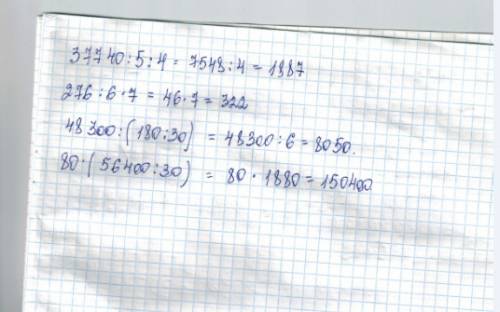 37740:5:4 = 7548:4 = 1887
276:6·7 = 46·7 = 322
48300:(180:30) = 48300:6 = 8050.
80·(56400:30) = 80·1880 = 150400